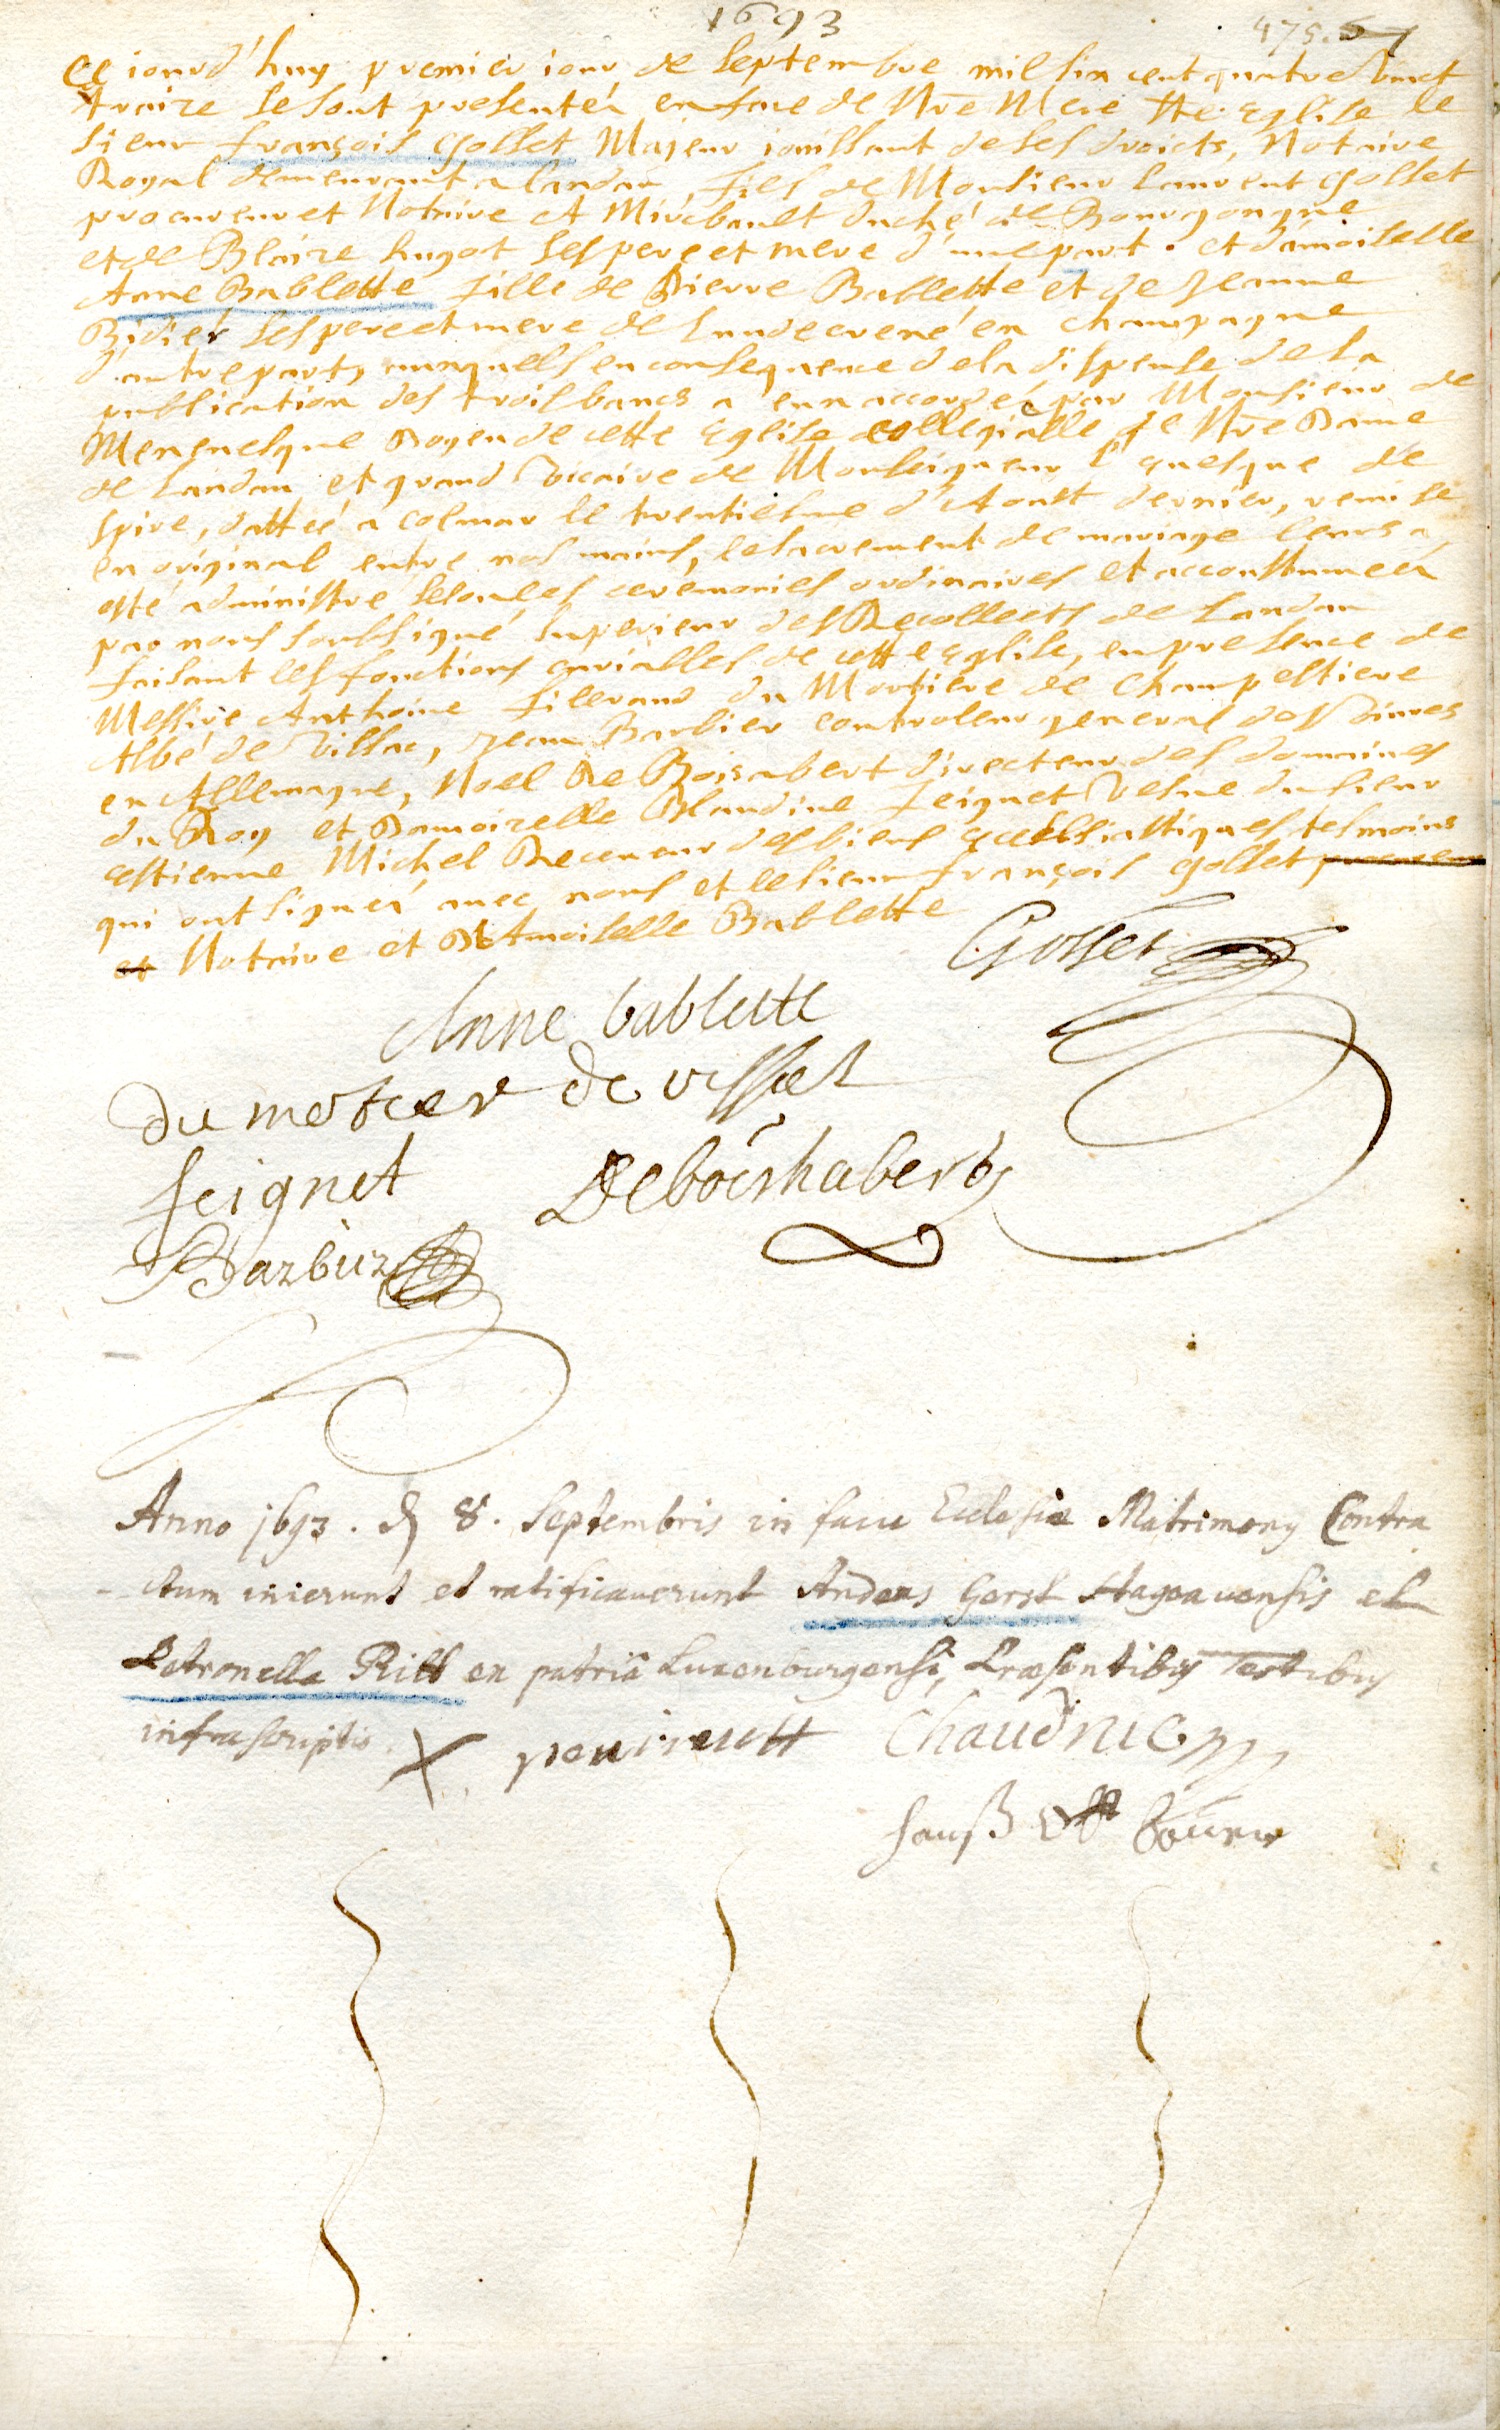 1693
475. 57
Ce iourd'huy premier iour de Septembre mil six cent quatre vinct
traize se sont presentéz en face de Nr̃e Mere Ste Eglise le
sieur François Gosset Majeur iouissant de ses droicts, Notaire
Royal demeurant a landau, fils de Monsieur laurent Gosset
procureur et Notaire a Mirebault duché de Bourgongne
et de Blaize hugot ses pere et mere d'une part. et d'amoiselle
Anne Bablette fille de Pierre Bablette et de Jeanne
Bidier ses pere et mere de en Champagne
d'autre part, auxquells en consequence de la dispense de la
publication des trois bancs a eux accordéz par Monsieur de
Merenesque Doyen de cette Eglise collegialle de Nr̃e Dame
de Landau et grand Vicaire de Monseigneur l'Euesque de
Spire, dattée a Colmar le trentiesme d'Aoust dernier, remise
en original entre nos mains, le sacrement de mariage leurs a
esté administré selon les ceremonies ordinaires et accoustuméez
par nous soubsigné superieur des Recollects de Landau
faisant les fonctions curialles de cette Eglise, en presence de
Messire Anthoine fillerand du Mortiere de Champestiere
Abbé de Villac, Jean Barbier controleur general des Viures
en Allemagne, Noel De Boisabert directeur des domaines
du Roy et Damoizelle Blandine feignet Vesue du sieur
Estienne Michel Receueur des biens Ecclesiastiques tesmoins
qui ont signéz auec nous et le sieur François Gosset
et Notaire et Damoiselle Bablette
Gosset
Anne bablette
du mortier de
feignet Deboishabert
Barbier
Anno 1693. d 8. Septembris in facie Ecclesiæ Matrimony Contra
-ctum inierunt et ratificauerunt Andreas Gerst Hagoauensis et
Petronella Ritt ex patriâ Luxenburgensi, Præsentibus Testibus
infrascriptis. X